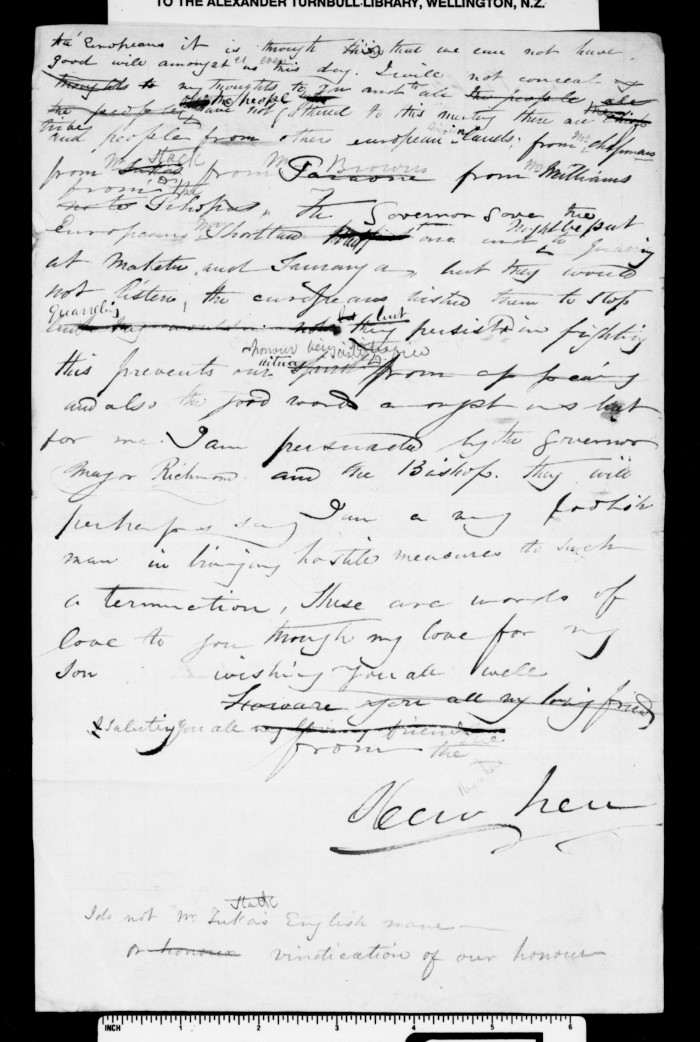 TO THE ALEXANDER TURNBULL LIBRARY, WELLINGTON, N.Z.
the Europeans it is through this that we can not have
good will amongst us even at this day. I will not conceal my
thoughts to my thoughts to you and to all the people
the people have not gathered to this meeting there are the
tribes and people from other european lands; from Mr Chapmans
from Mr Stack from Mr Browns from Mr Williams
from the
Pihopas. The Governor gave the
Europeans Mr Shortland and might be put to quarrelling
at Maketu and Tauranga, but they would
not listen, the europeans wished them to stop
quarreling but they persisted in fighting
this prevents our from appearing
and also the good words amongst us but
for me. I am persuaded by the Governor
Major Richmond and the Bishop. they will
perhaps say I am a very foolish
man in bringing hostile measures to such
a termination, These are words of
love to you though my love for my
Son wishing you all well
you all my loving friends
I saluting you all my loving friends
from the
Heu heu
Stack
I do not Mr English name
or honour vindication of our honour
INCH 1 2 3 4 5 6